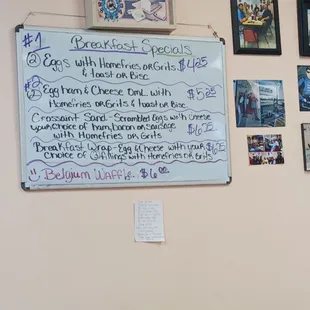 #1 Breakfast Specials
② Eggs with Homefries or Grits $4.25
& toast or Bisc
#2
② Egg ham & Cheese Oml with $5.25
Homefries or Grits & toast or Bisc
Croissaint Sand - Scrambled Eggs with cheese
your choice of ham, bacon or sausage
with Homefries or Grits $6.25
Breakfast Wrap - Egg & Cheese with your
Choice of fillings with Homefries or Grits
Belgium Waffle.. $6.00